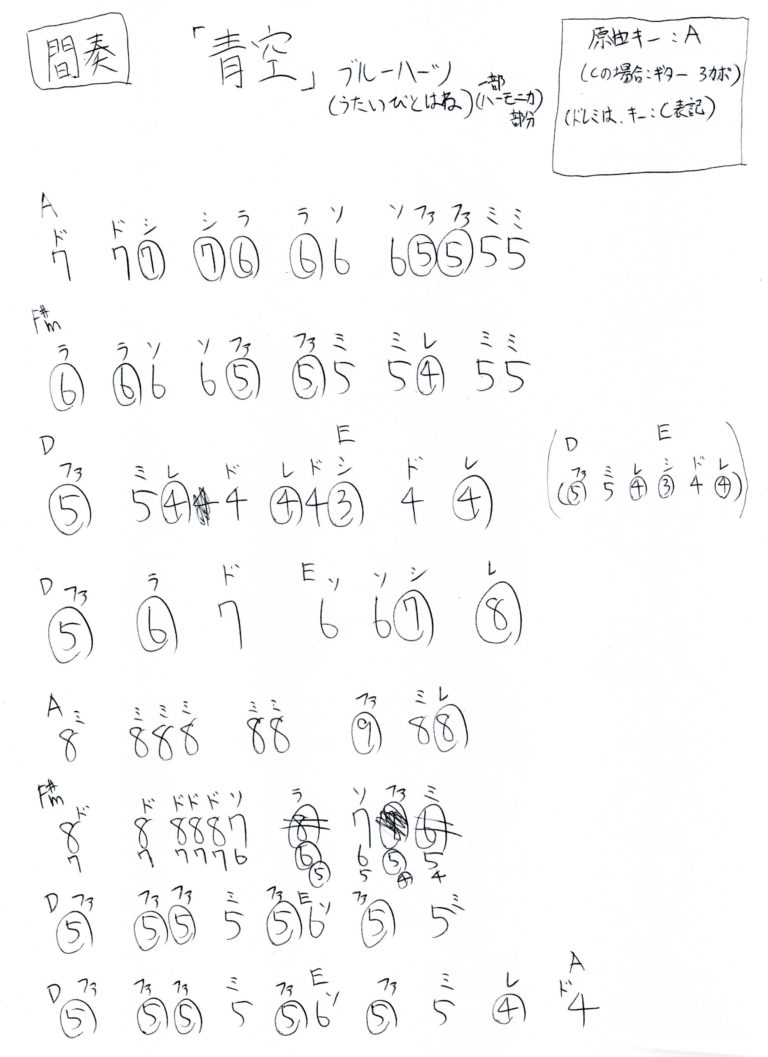 間奏
「青空」 ブルーハーツ
(うたいびとはね)
一部
(ハーモニカ)
部分
原曲キー:A
(Cの場合:ギター 3カポ)
(ドレミは、キー:C表記)
A
ド ド シ シ ラ ラ ソ ソ ファ ファ ミ ミ
7 7 ⑦ ⑦ ⑥ ⑥ 6 6 ⑤ ⑤ 5 5
F#m
ラ ラ ソ ソ ファ ファ ミ ミ レ ミ ミ
⑥ ⑥ 6 6 ⑤ ⑤ 5 5 ④ 5 5
D E
ファ ミ レ ド レ ド シ ド レ
⑤ 5 ④ 4 ④ 4 ③ 4 ④
D E
ファ ミ レ シ ド レ
(⑤ 5 ④ ③ 4 ④)
D ファ ラ ド E ソ ソ シ レ
⑤ ⑥ 7 6 6 ⑦ ⑧
A ミ ミ ミ ミ ミ ミ ファ ミ レ
8 8 8 8 8 8 ⑨ 8 ⑧
F#m
ド ド ド ド ド ソ ラ ソ ファ ミ
8 8 8 8 8 7 ⑧ 7 ⑥
7 7 7 7 7 6 ⑥ 6 ⑤ 5
⑤ 5 ④ 4
D ファ ファ ファ ミ ファ E ソ ファ ミ
⑤ ⑤ ⑤ 5 ⑤ 6 ⑤ 5
D ファ ファ ファ ミ ファ E ソ ファ ミ レ A ド
⑤ ⑤ ⑤ 5 ⑤ 6 ⑤ 5 ④ 4